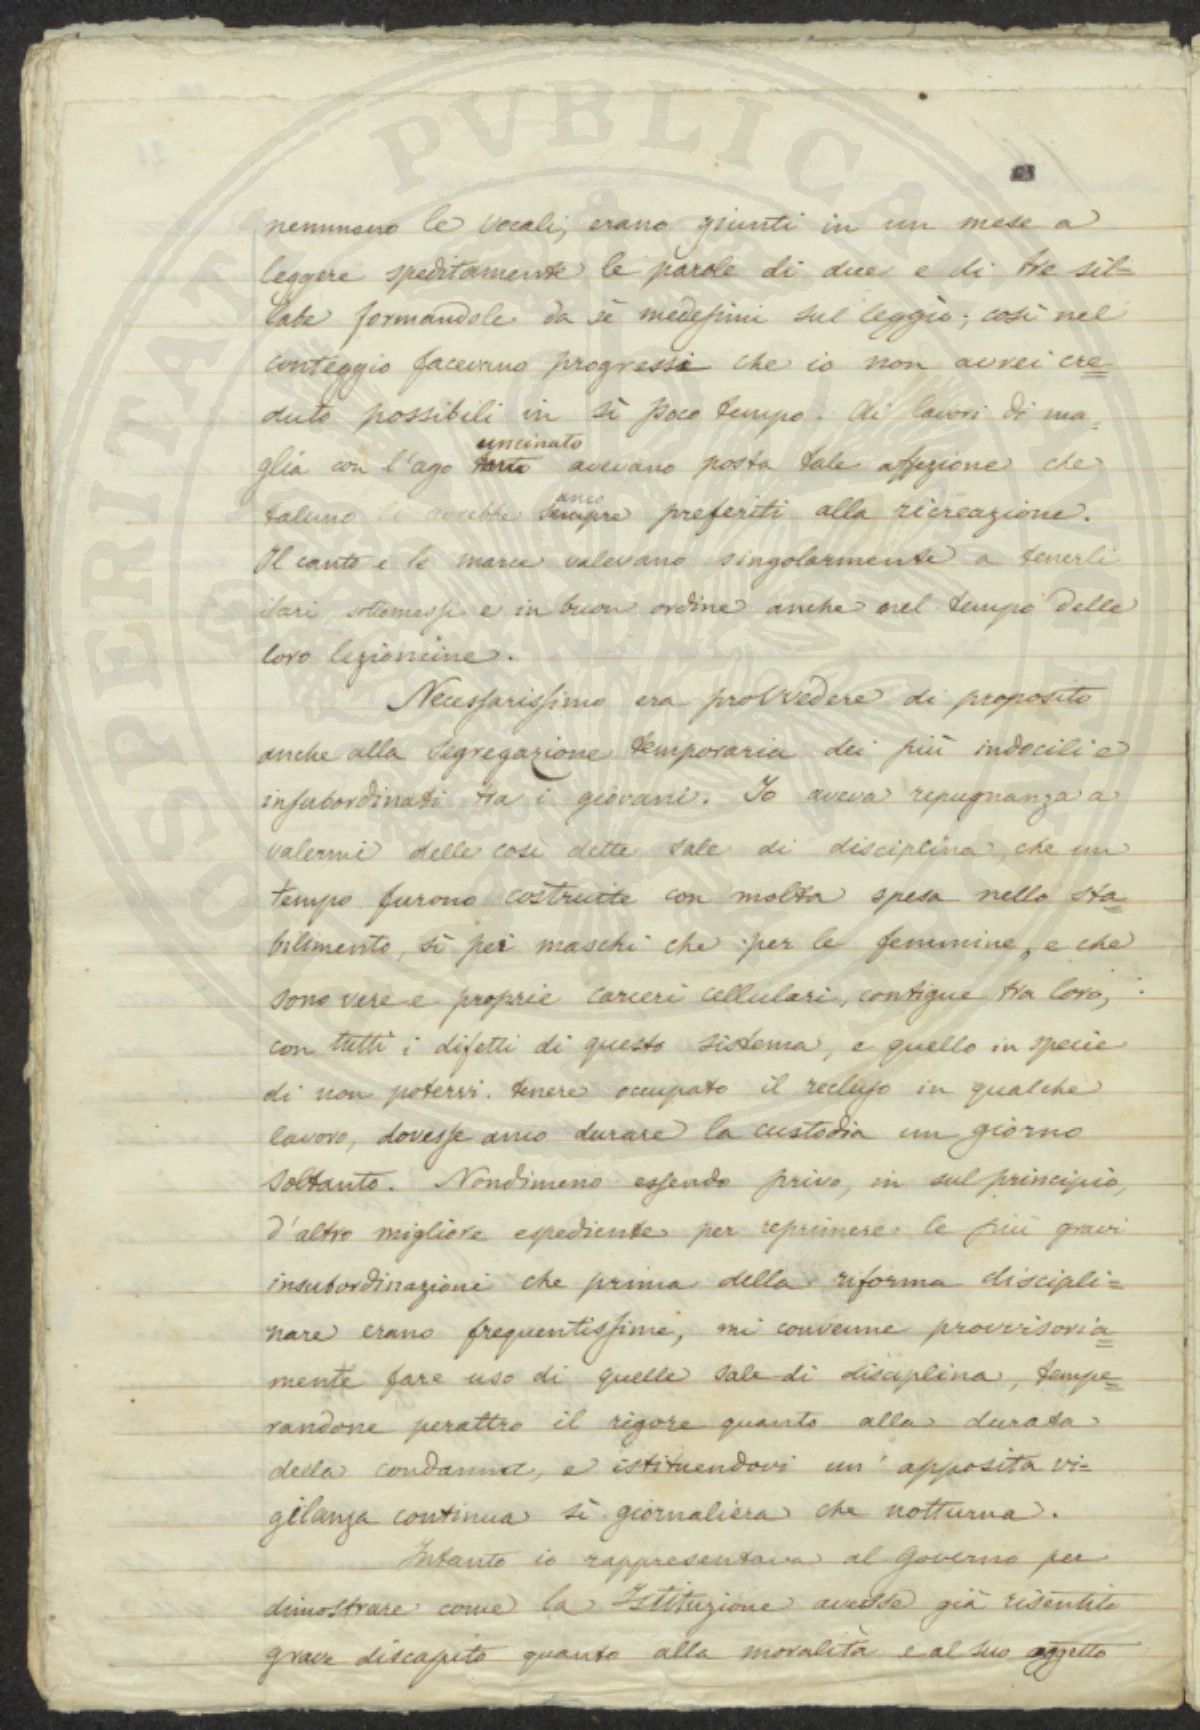 nemmeno le vocali, erano giunti in un mese a
leggere speditamente le parole di due e di tre sil=
labe formandole da sè medesimi sul leggìo; così nel
conteggio facevano progressi che io non avrei cre=
duto possibili in sì poco tempo. Ai lavori di ma=
glia con l'ago uncinato avevano posta tale affezione che
taluno li avrebbe anco preferiti alla ricreazione.
Il canto e le marce valevano singolarmente a tenerli
ilari, sottomessi e in buon ordine anche nel tempo delle
loro lezioncine.
Necessarissimo era provvedere di proposito
anche alla segregazione temporaria dei più indocili e
insubordinati tra i giovani. Io aveva repugnanza a
valermi delle così dette sale di disciplina, che un
tempo furono costruite con molta spesa nello sta=
bilimento, sì pei maschi che per le femmine, e che
sono vere e proprie carceri cellulari, contigue tra loro,
con tutti i difetti di questo sistema, e quello in specie
di non potervi tenere occupato il recluso in qualche
lavoro, dovesse anco durare la custodia un giorno
soltanto. Nondimeno essendo privo, in sul principio,
d'altro migliore espediente per reprimere le più gravi
insubordinazioni che prima della riforma discipli=
nare erano frequentissime, mi convenne provvisoria=
mente fare uso di quelle sale di disciplina, tempe=
randone peraltro il rigore quanto alla durata
della condanna, e istituendovi un' apposita vi=
gilanza continua sì giornaliera che notturna.
Intanto io rappresentava al Governo per
dimostrare come la Istituzione avesse già risentito
grave discapito quanto alla moralità e al suo oggetto
SPERITAT PVBLICAE